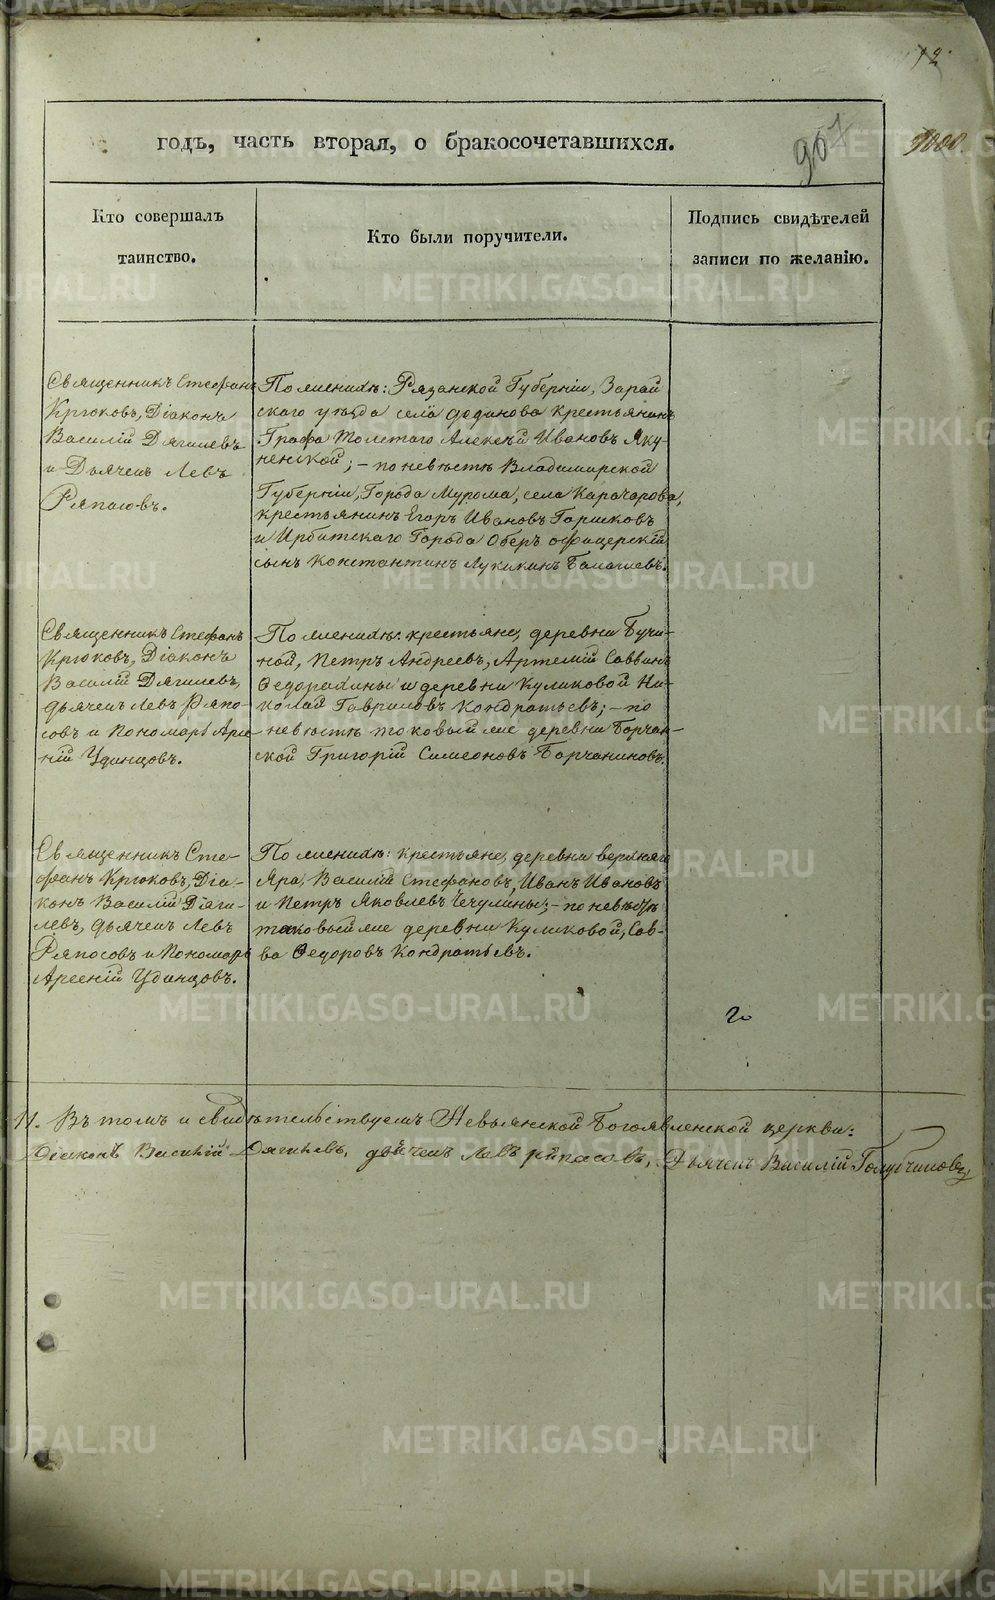 12
годъ, часть вторая, о бракосочетавшихся.
907
1000.
Кто совершалъ
таинство.
Кто были поручители.
Подпись свидѣтелей
записи по желанію.
Священникъ Стефанъ
Крюковъ, Діаконъ
Василій Дягилевъ
и Дьячекъ Левъ
Ряпасовъ.
По женихѣ: Рязанской Губерніи, Зарай
скаго уѣзда села Дединова крестьянинъ
Графа Толстаго Алексѣй Ивановъ Яку-
ненской; – по невѣстѣ Владимирской
Губерніи, Города Мурома, села Карачарова,
крестьянинъ Егоръ Ивановъ Горшковъ
и Ирбитскаго Города Оберъ офицерскій
сынъ Константинъ Лукикинъ
Священникъ Стефанъ
Крюковъ, Діаконъ
Василій Дягилевъ,
дьячекъ Левъ Ряпо-
совъ и Пономарь Арсе-
ній Удинцовъ.
По женихѣ: крестьяне, деревни Бучи-
ной, Петръ Андреевъ, Артемій Саввинъ
Ѳедорахины и деревни Куликовой Ни-
колай Гавриловъ Кондратьевъ; – по
невѣстѣ таковый же деревни Борчан-
ской Григорій Симеоновъ Борчаниновъ.
Священникъ Сте-
фанъ Крюковъ, Діа-
конъ Василій Дяги-
левъ, дьячекъ Левъ
Ряпосовъ и Пономарь
Арсеній Удинцовъ.
По женихѣ: крестьяне, деревни верхняго
Яра, Василій Стефановъ, Иванъ Ивановъ
и Петръ Яковлевъ Чечулины; – по невѣстѣ
таковый же деревни Куликовой, Сав-
ва Ѳедоровъ Кондратьевъ.
Въ томъ и свидѣтельствуемъ Невьянской Богоявленской церкви:
Діаконъ Василій Дягилевъ, дьячекъ Левъ Ряпасовъ, Дьячекъ Василій Голубчиковъ
METRIKI.GASO-URAL.RU